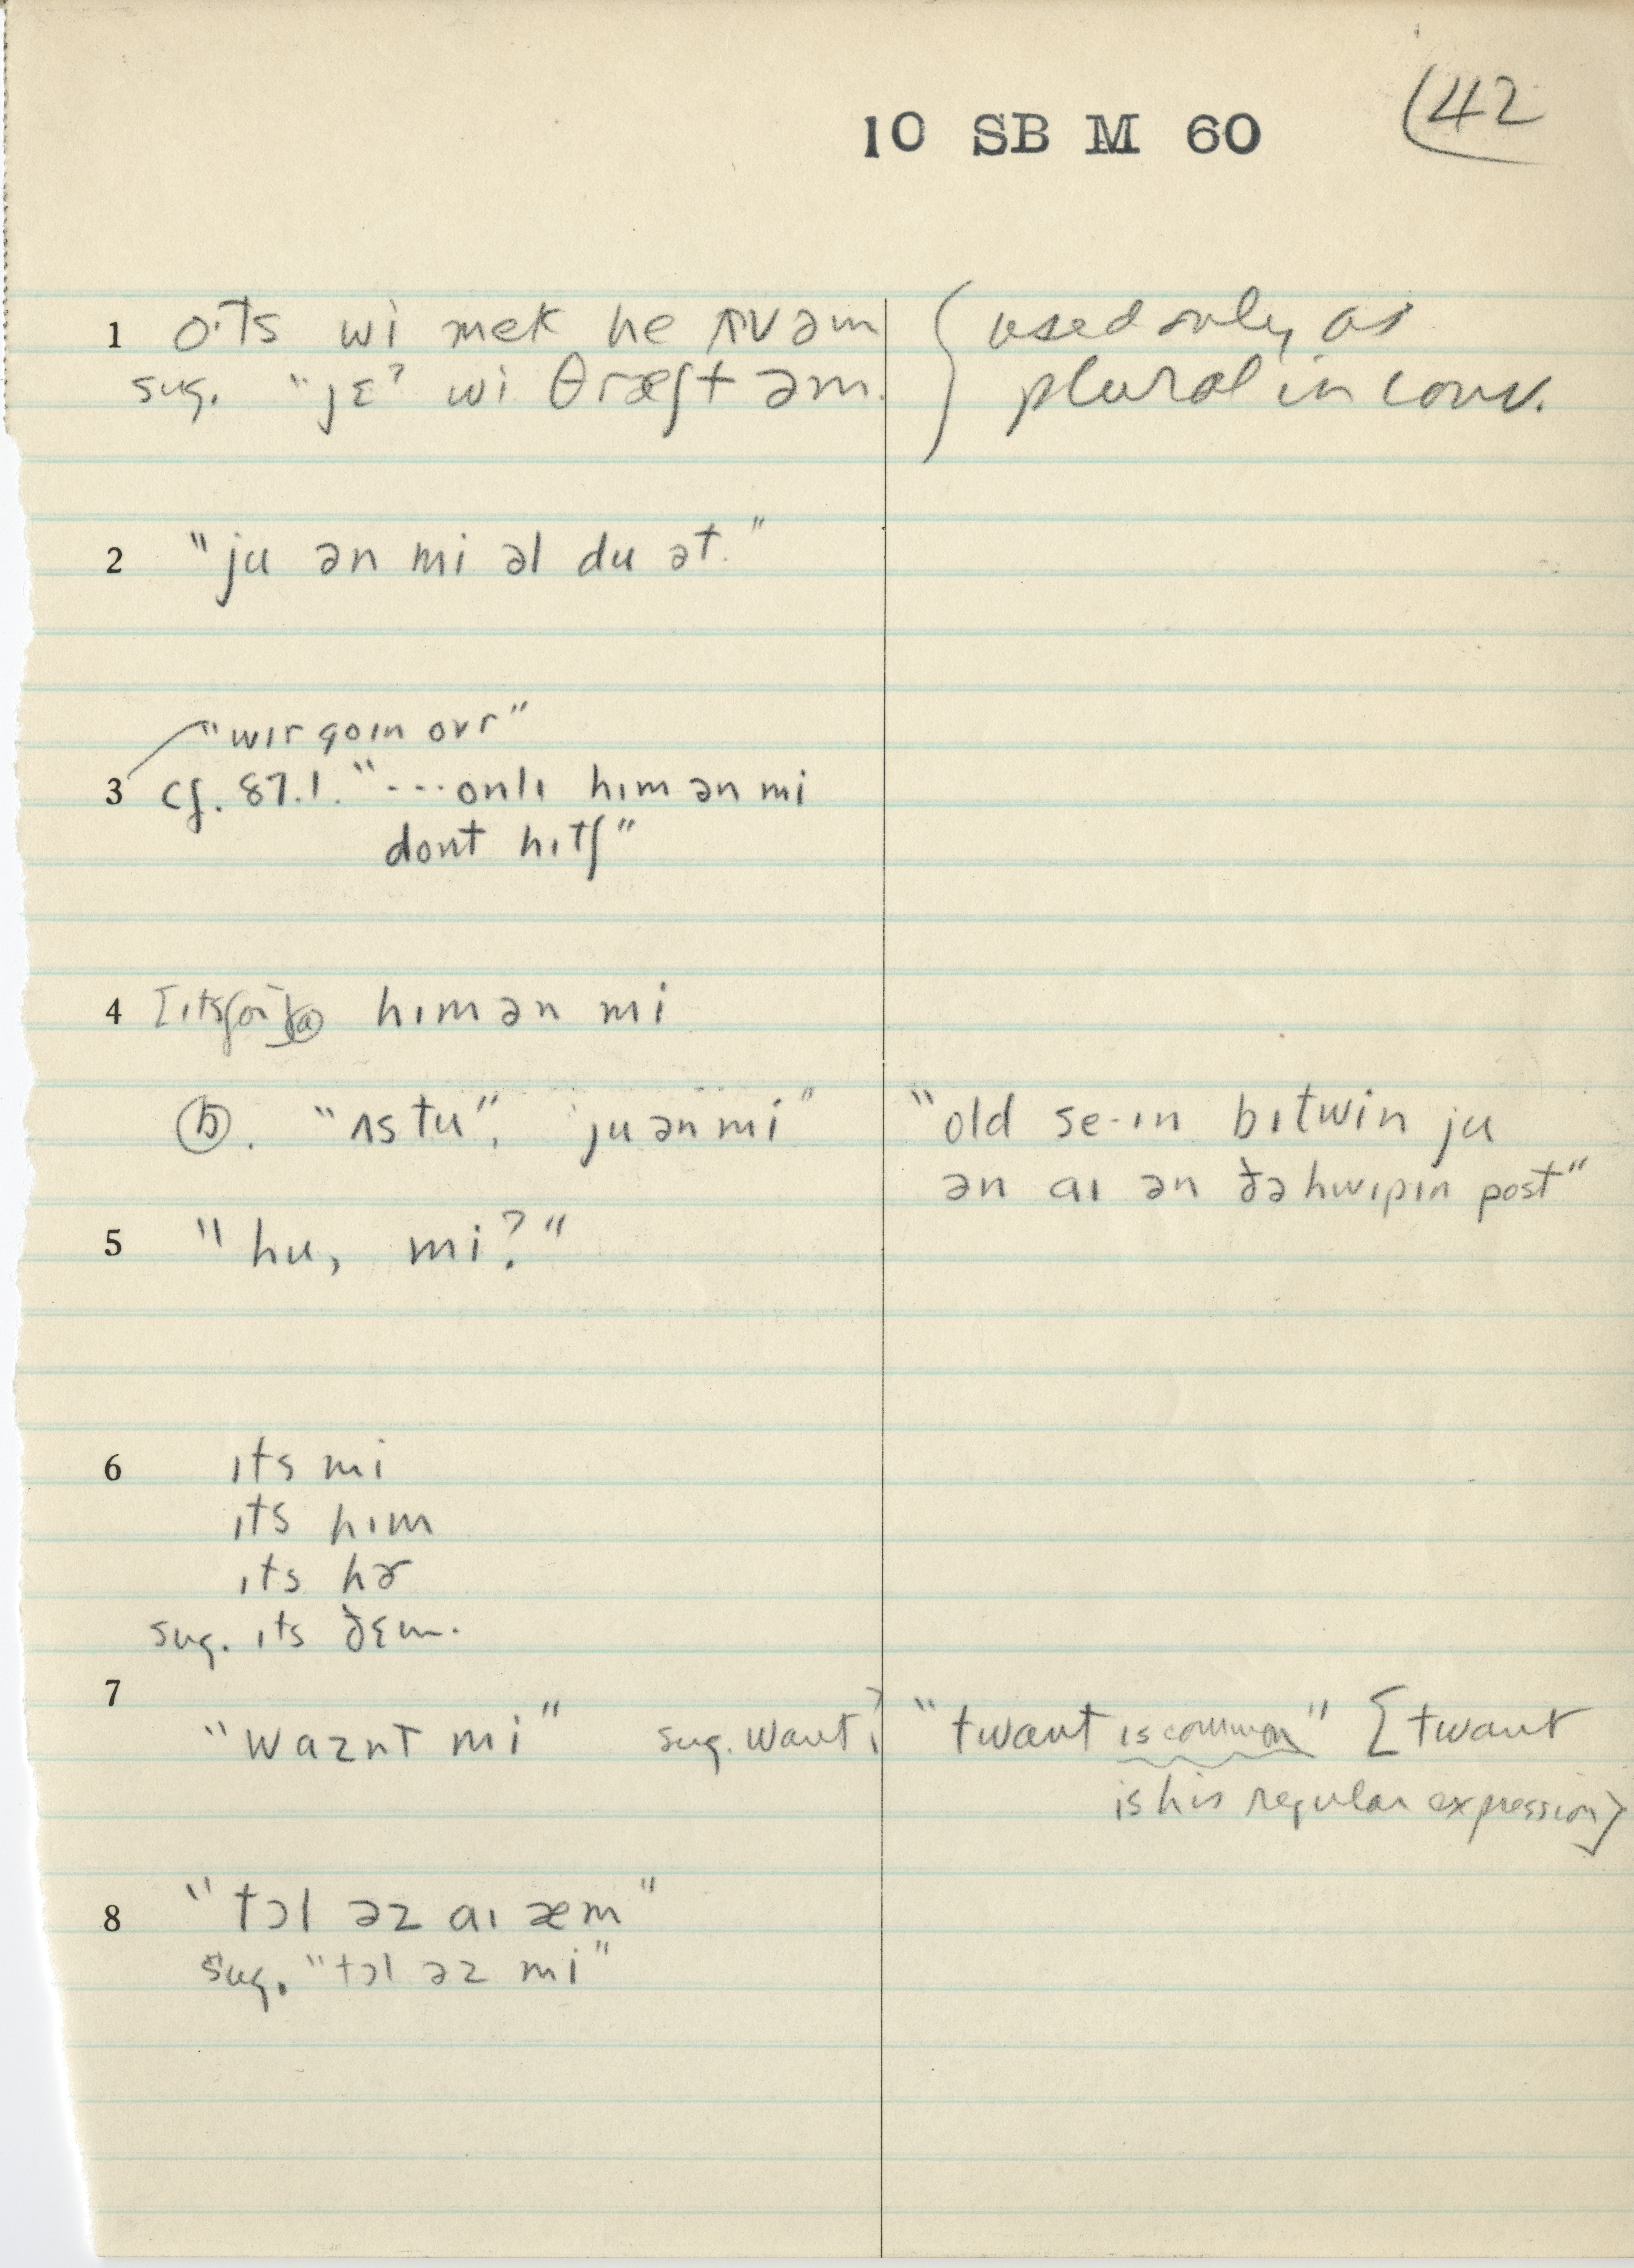 10 SB M 60 (42
1 o·ts wi mek he ʌv əm { used only as
sug. "jɛ? wi θræʃt əm. plural in conv.
2 "ju ən mi əl du ət."
"wɪr goɪn ovr"
3 cf. 87.1. "---onlɪ hɪm ən mi
dont hɪtʃ"
4 ⓐ hɪm ən mi
ⓑ. "ʌs tu", ju ən mi" "old se-ɪn bɪtwin ju
ən aɪ ən ðə hwɪpɪn post"
5 "hu, mi?"
6 ɪts mi
ɪts hɪm
ɪts hɚ
sug. ɪts ðɛm.
7
"waznt mi" sug. want? "twant is common" [twant
is his regular expression]
8 "tɔl əz aɪ æm"
sug. "tɔl əz mi"